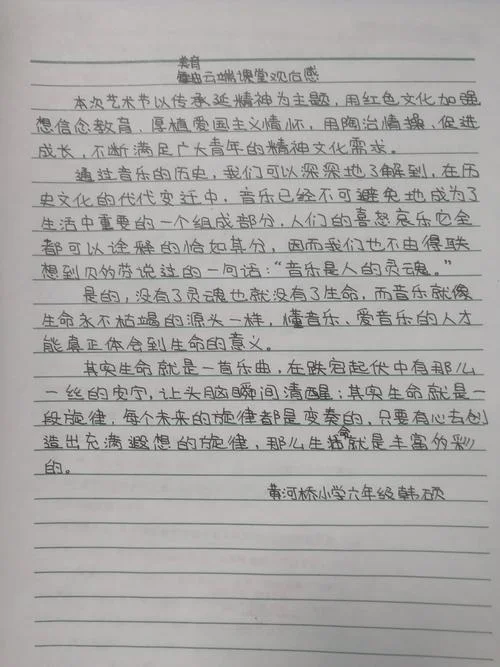 美育
云端课堂观后感
本次艺术节以传承延精神为主题，用红色文化加强
想信念教育、厚植爱国主义情怀，用陶冶情操、促进
成长，不断满足广大青年的精神文化需求。
通过音乐的历史，我们可以深深地了解到，在历
史文化的代代变迁中，音乐已经不可避免地成为了
生活中重要的一个组成部分，人们的喜怒哀乐它全
都可以诠释的恰如其分，因而我们也不由得联
想到贝多芬说过的一句话：“音乐是人的灵魂。”
是的，没有了灵魂也就没有了生命，而音乐就像
生命永不枯竭的源头一样，懂音乐、爱音乐的人才
能真正体会到生命的意义。
其实生命就是一首乐曲，在跌宕起伏中有那么
一丝的安宁，让头脑瞬间清醒；其实生命就是一
段旋律，每个未来的旋律都是变奏的，只要有心去创
造出充满遐想的旋律，那么生命就是丰富多彩
的。
黄河桥小学六年级韩硕